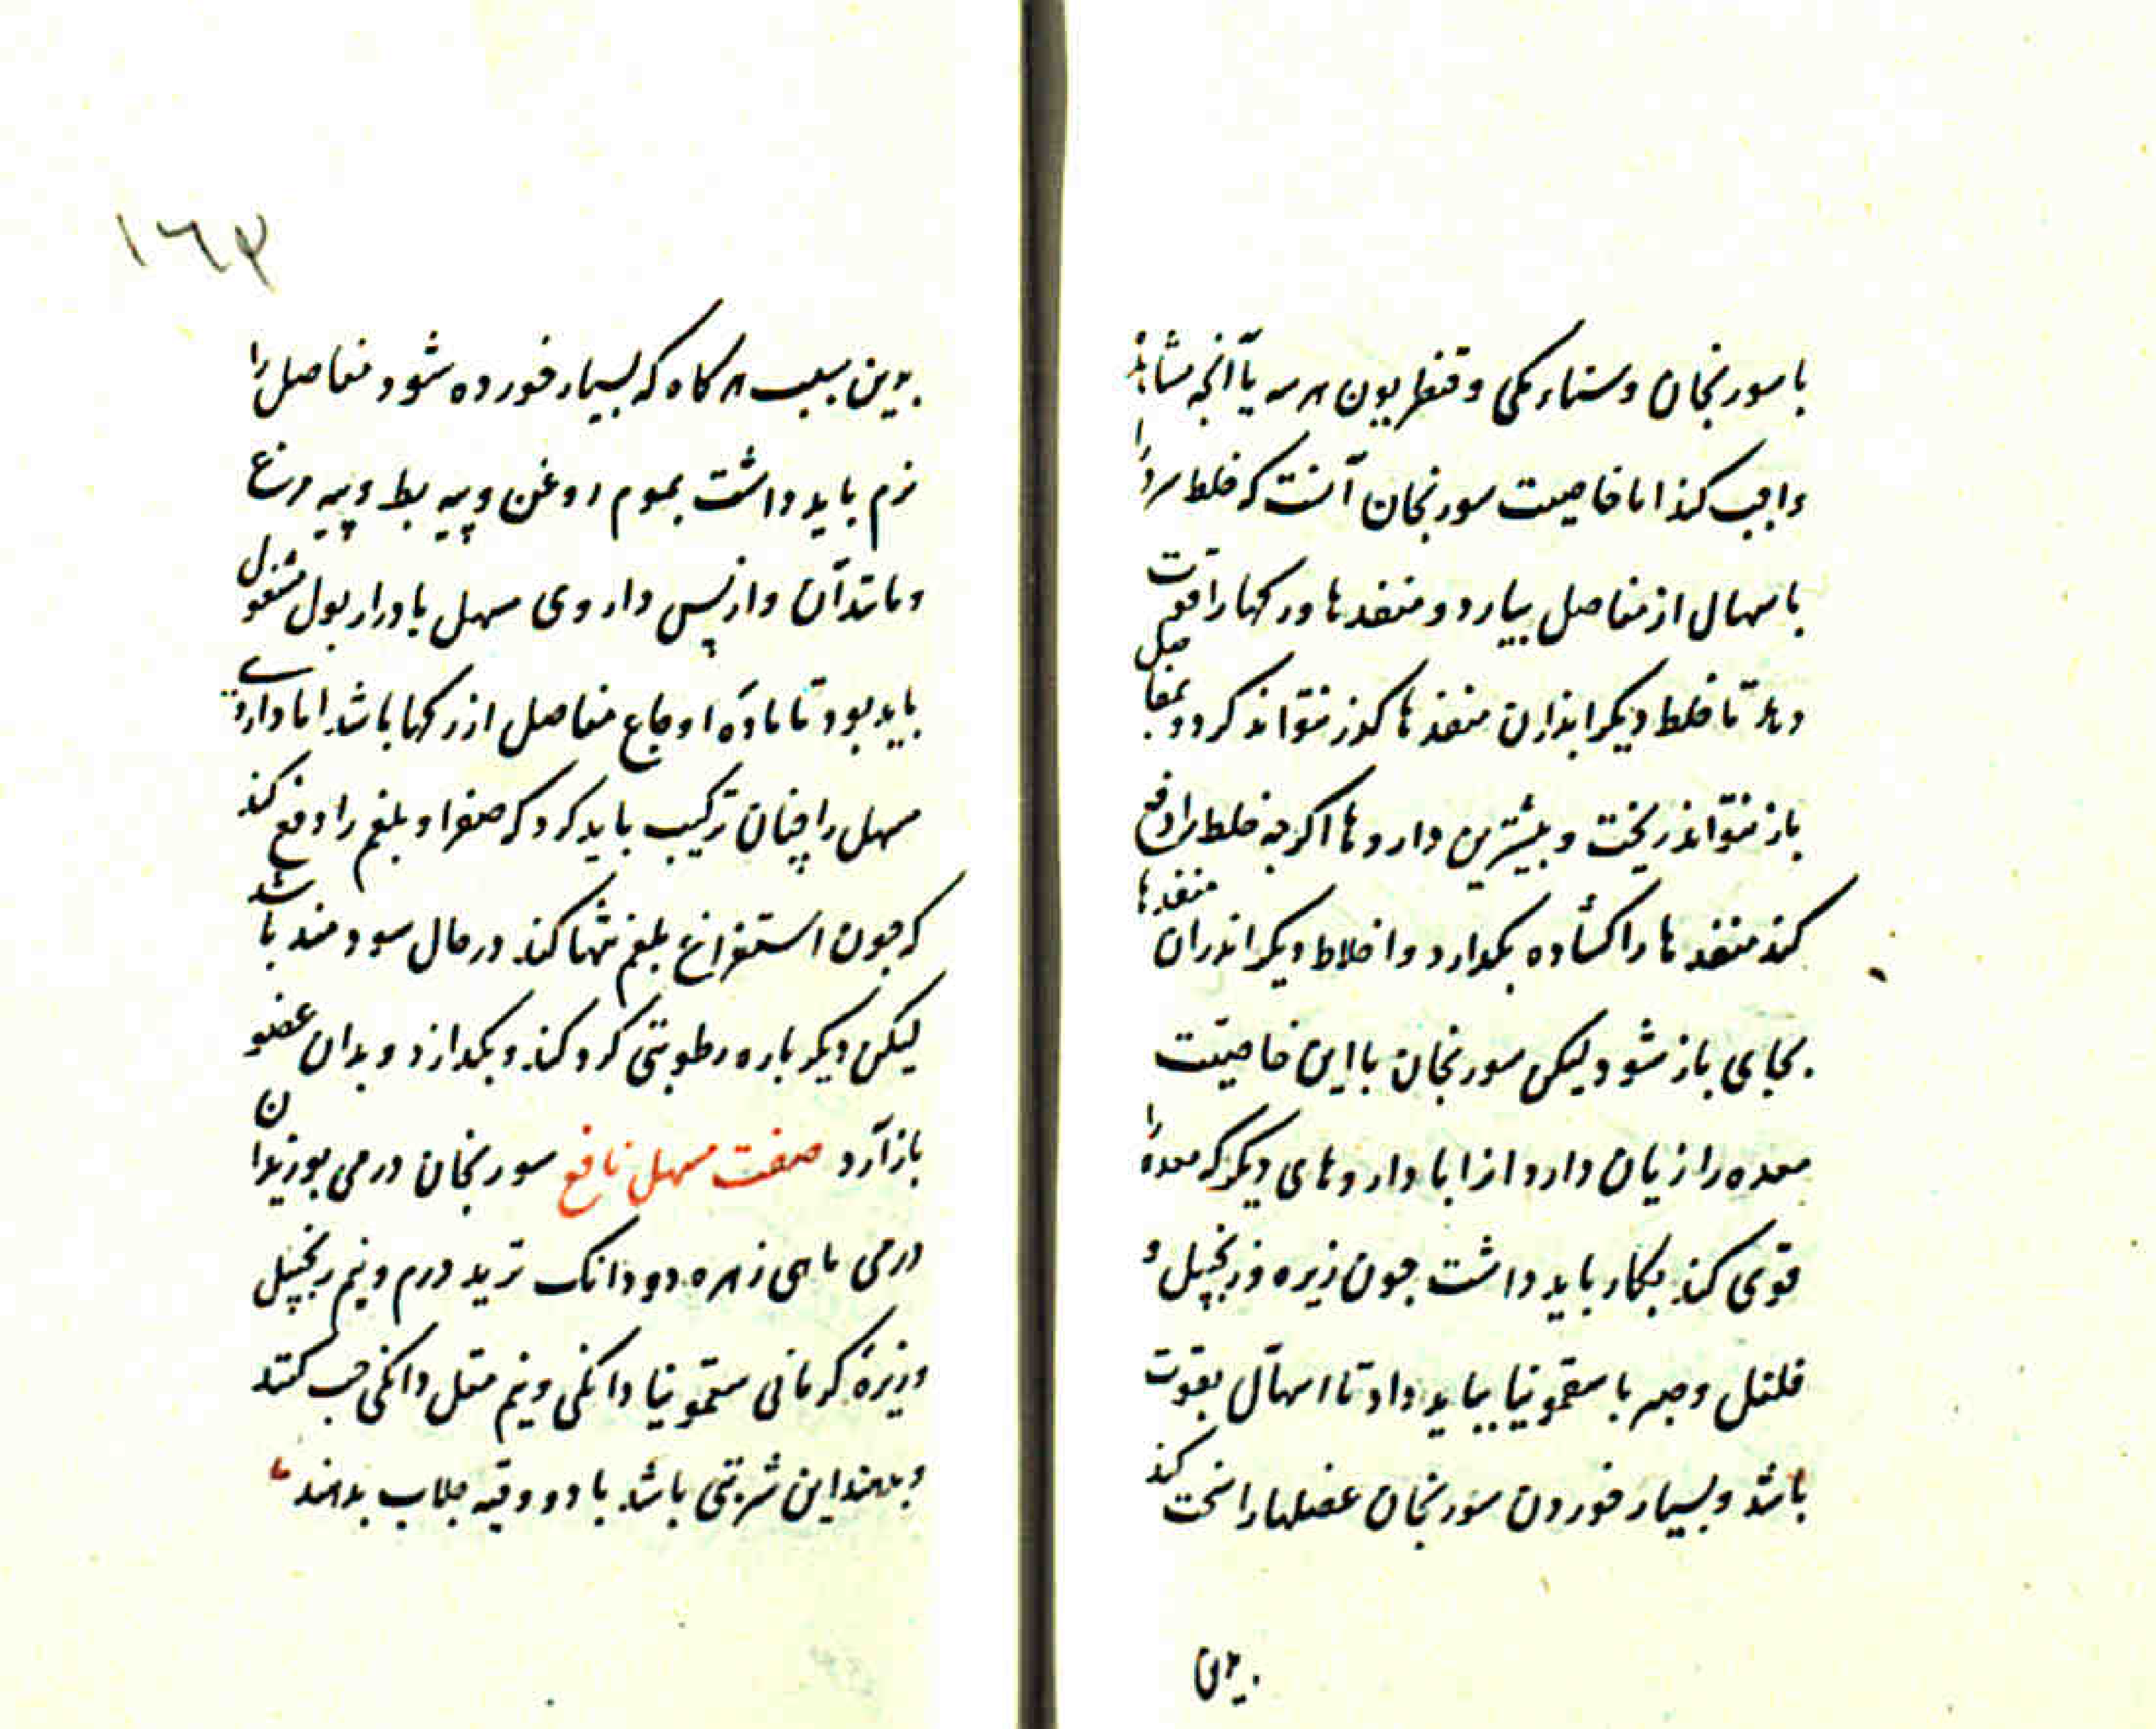 با سورنجان و سناء مکی و قنطریون هر سه یا آنچه مشاهذ
واجب کند اما خاصیت سورنجان آنست که خلط سرد را
باسهال از مفاصل بیارد و منفذها و رکها را قوت
دهد تا خلط دیکر اندران منفذها کذر نتواند کرد و بمفاصل
باز نتواند ریخت و بیشترین داروها اکرجه خلط را دفع
کند منفذها را کشاده بکدارد و اخلاط دیکر اندران منفذها
بجای باز شود لیکن سورنجان با این خاصیّت
معده را زیان دارد از ابا داروهای دیکر که معده را
قوی کند بکار باید داشت جون زیره و زنجپیل و
فلفل و صبر با سقمونیا بباید داد تا اسهال بقوت
باشد و بسیار خوردن سورنجان عضلها را سخت کند
بدین
١٦٣
بدین سبب هر کاه که بسیار خورده شود مفاصل را
نرم باید داشت بموم روغن و پیه بط و پیه مرغ
و مانند آن و از پس داروی مسهل بادرار بول مشغول
باید بود تا مادّه اوجاع مفاصل از رکها باشد اما داروی
مسهل را چنان ترکیب باید کرد که صفرا و بلغم را دفع کند
که جون استفراغ بلغم تنها کند در حال سودمند باشد
لیکن دیکر باره رطوبتی کرد کند و بکدازد و بدان عضو
باز آرد صفت مسهل نافع سورنجان درمی بوزیدان
درمی ماهی زهره دو دانک تربد درم و نیم زنجپیل
و زیرهٔ کرمانی سقمونیا دانکی و نیم مقل دانکی حب کنند
و بدهند این شربتی باشد با دو وقیه جلاب بدهند